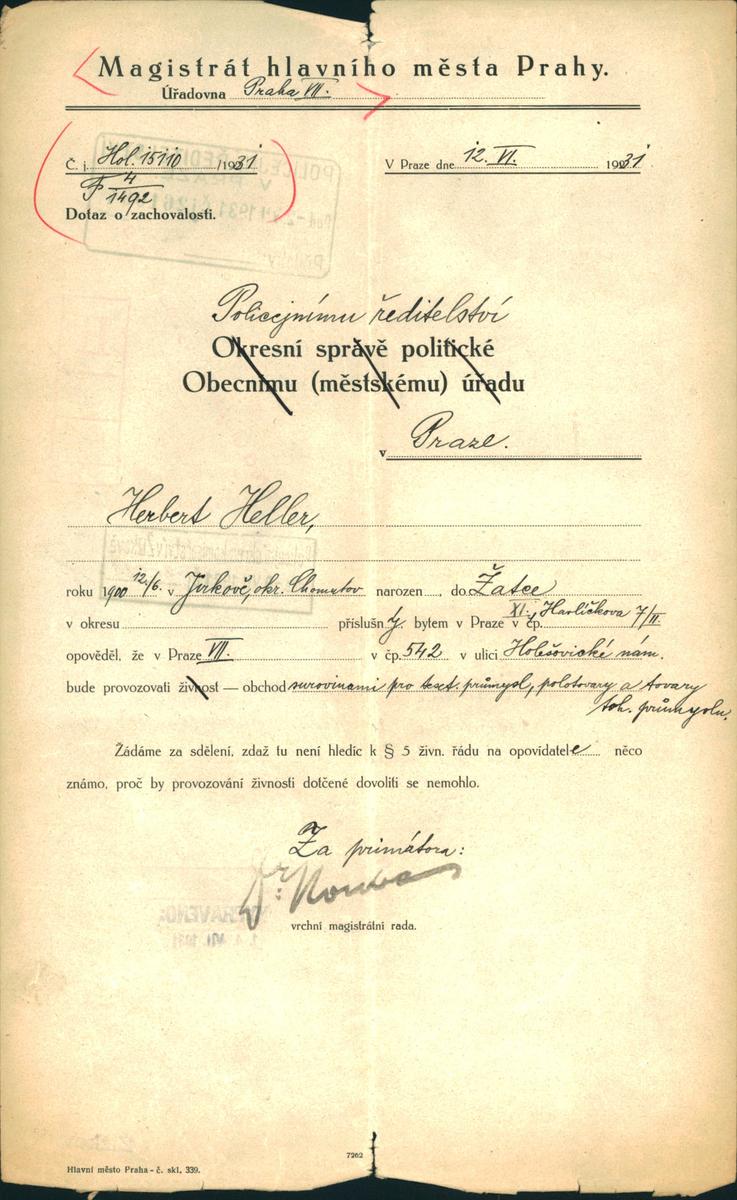 Magistrát hlavního města Prahy.
Úřadovna Praha VII.
Č. j. Hol. 15110 /1931
F 4/1492
V Praze dne 12. VI. 1931
Dotaz o zachovalosti.
Policejnímu ředitelství
Okresní správě politické
Obecnímu (městskému) úřadu
v Praze.
Herbert Heller,
roku 1900 12./6. v Jirkově, okr. Chomutov narozen, do Žatce
v okresu příslušný bytem v Praze XI. v čp. Havlíčkova 7/II
opověděl, že v Praze VII. v čp. 542 v ulici Holešovické nám.
bude provozovati živnost — obchod surovinami pro text. průmysl, polotovary a tovary
toh. průmyslu.
Žádáme za sdělení, zdaž tu není hledíc k § 5 živn. řádu na opovídatele něco
známo, proč by provozování živnosti dotčené dovoliti se nemohlo.
Za primátora:
Dr.
vrchní magistrátní rada.
7262
Hlavní město Praha - č. skl. 339.